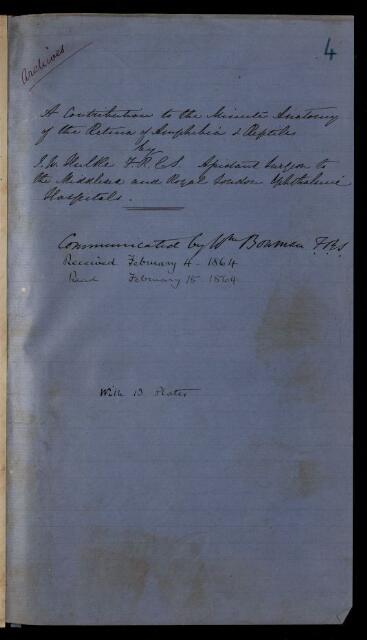 Archives
4
A Contribution to the Minute Anatomy
of the Retina of Amphibia & Reptiles
by
J. W. Hulke F.R.C.S. Assistant Surgeon to
the Middlesex and Royal London Ophthalmic
Hospitals.
Communicated by Wm Bowman F.R.S.
Received February 4 - 1864
Read February 18 1864
With 13 Plates